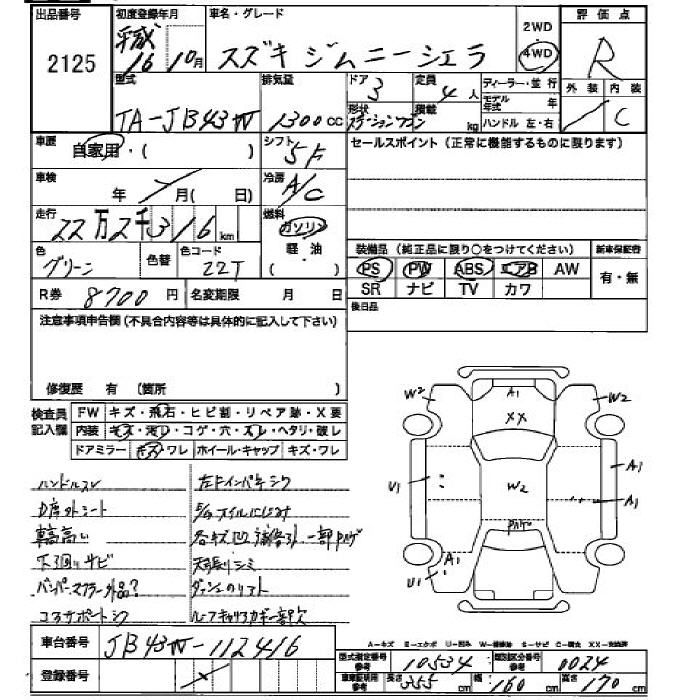 出品番号
2125
初度登録年月
平成 16 10月
車名・グレード
スズキ ジムニーシエラ
2WD
4WD
評価点
R
外装 内装
C
型式
TA-JB43W
排気量
1300cc
ドア
3
定員
4人
形状
ステーションワゴン
積載
kg
ディーラー・並行
モデル年式 年
ハンドル 左・右
車歴
自家用・( )
シフト
5F
セールスポイント (正常に機能するものに限ります)
車検
年 月(日)
冷房
A/C
走行
22万2千316km
燃料
ガソリン
軽・油
( )
色
グリーン
色替
色コード
22T
装備品 (純正品に限り○をつけてください)
新車保証書
PS PW ABS エアB AW
有・無
SR ナビ TV カワ
R券 8700円
名変期限 月 日
後日品
注意事項申告欄(不具合内容等は具体的に記入して下さい)
修復歴 有 (箇所 )
検査員記入欄
FW キズ・飛石・ヒビ割・リペア跡・X要
内装 キズ・汚レ・コゲ・穴・スレ・ヘタリ・破レ
ドアミラー キズ・ワレ ホイール・キャップ キズ・ワレ
ハンドルスレ
D席外シート
車高高い
下回りサビ
バンパーマフラー外品?
コアサポートシワ
左Fインパネシワ
各キズ凹 補修跡 一部ハゲ
天張りシミ
ルーフキャリアカギ一部欠
W2
A1
W2
XX
U1
W2
A1
A1
ハゲ
A1
U1
車台番号
JB43W-112416
登録番号
A−キズ E−エクボ U−凹み W−補修跡 S−サビ C−腐食 XX−交換済
型式指定番号 参考
10534
類別区分番号 参考
0024
車庫証明用 参考
長さ 355cm
幅 160cm
高さ 170cm